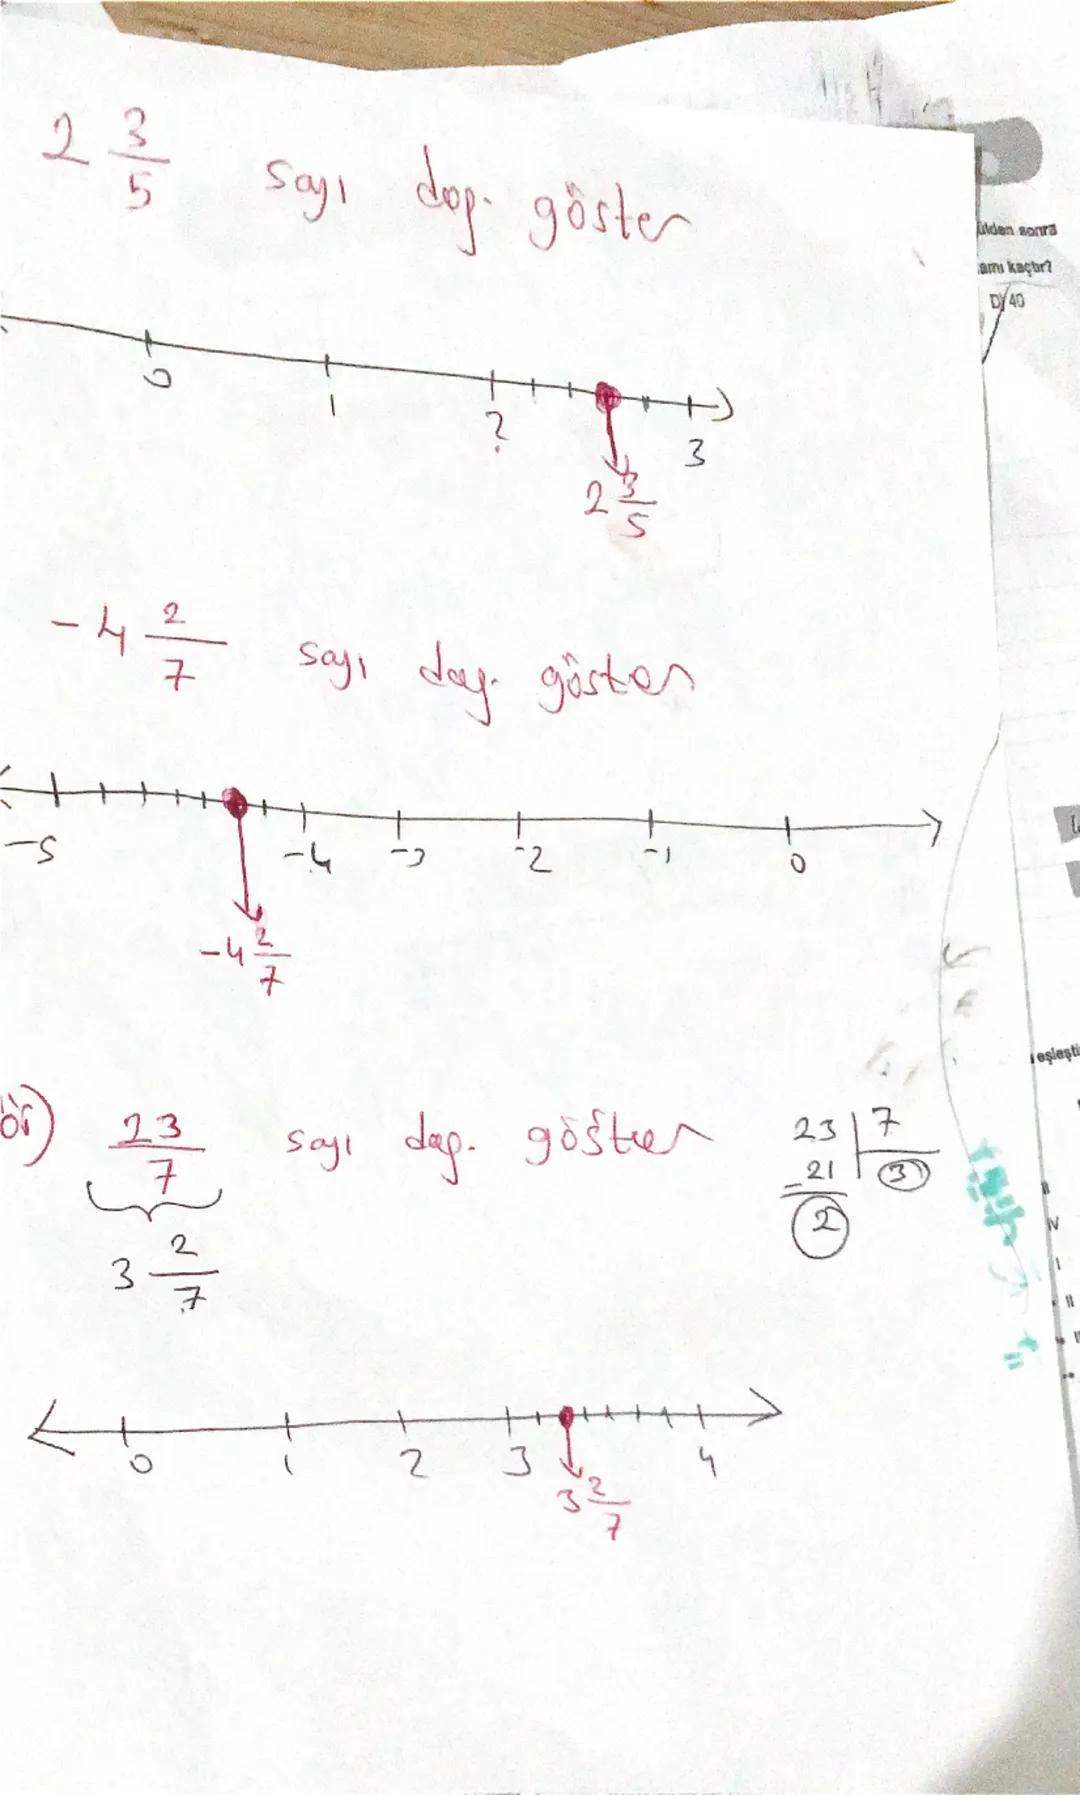 2 3/5 sayı doğ. göster
0 1 2 3
2 3/5
-4 2/7 sayı doğ. göster
-5 -4 -3 -2 -1 0
-4 2/7
ör) 23/7 sayı doğ. göster
3 2/7
23 | 7
- 21 3
2
0 1 2 3 4
3 2/7
ülden sonra
amı kaçtır?
D) 40
eşleşti
IV
I
II